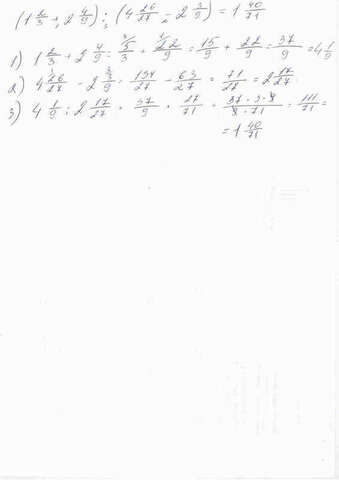 (1 2/3 + 2 4/9) : (4 26/27 - 2 3/9) = 1 40/71
1) 1 2/3 + 2 4/9 = 5/3 + 22/9 = 15/9 + 22/9 = 37/9 = 4 1/9
2) 4 26/27 - 2 3/9 = 134/27 - 63/27 = 71/27 = 2 17/27
3) 4 1/9 : 2 17/27 = 37/9 * 27/71 = 37 · 3 · 9 / 9 · 71 = 111/71 =
= 1 40/71